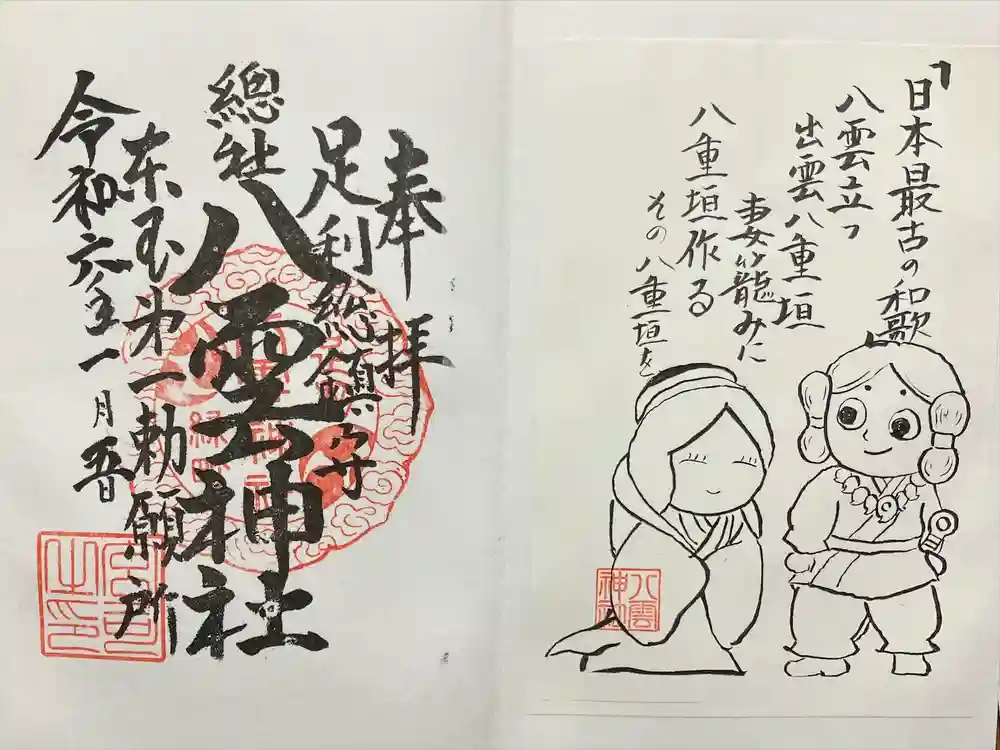 「日本最古の和歌
八雲立つ
出雲八重垣
妻籠みに
八重垣作る
その八重垣を
八雲
神社
奉拝
足利総鎮守
總社
八雲神社
東国第一勅願所
令和六年一月五日